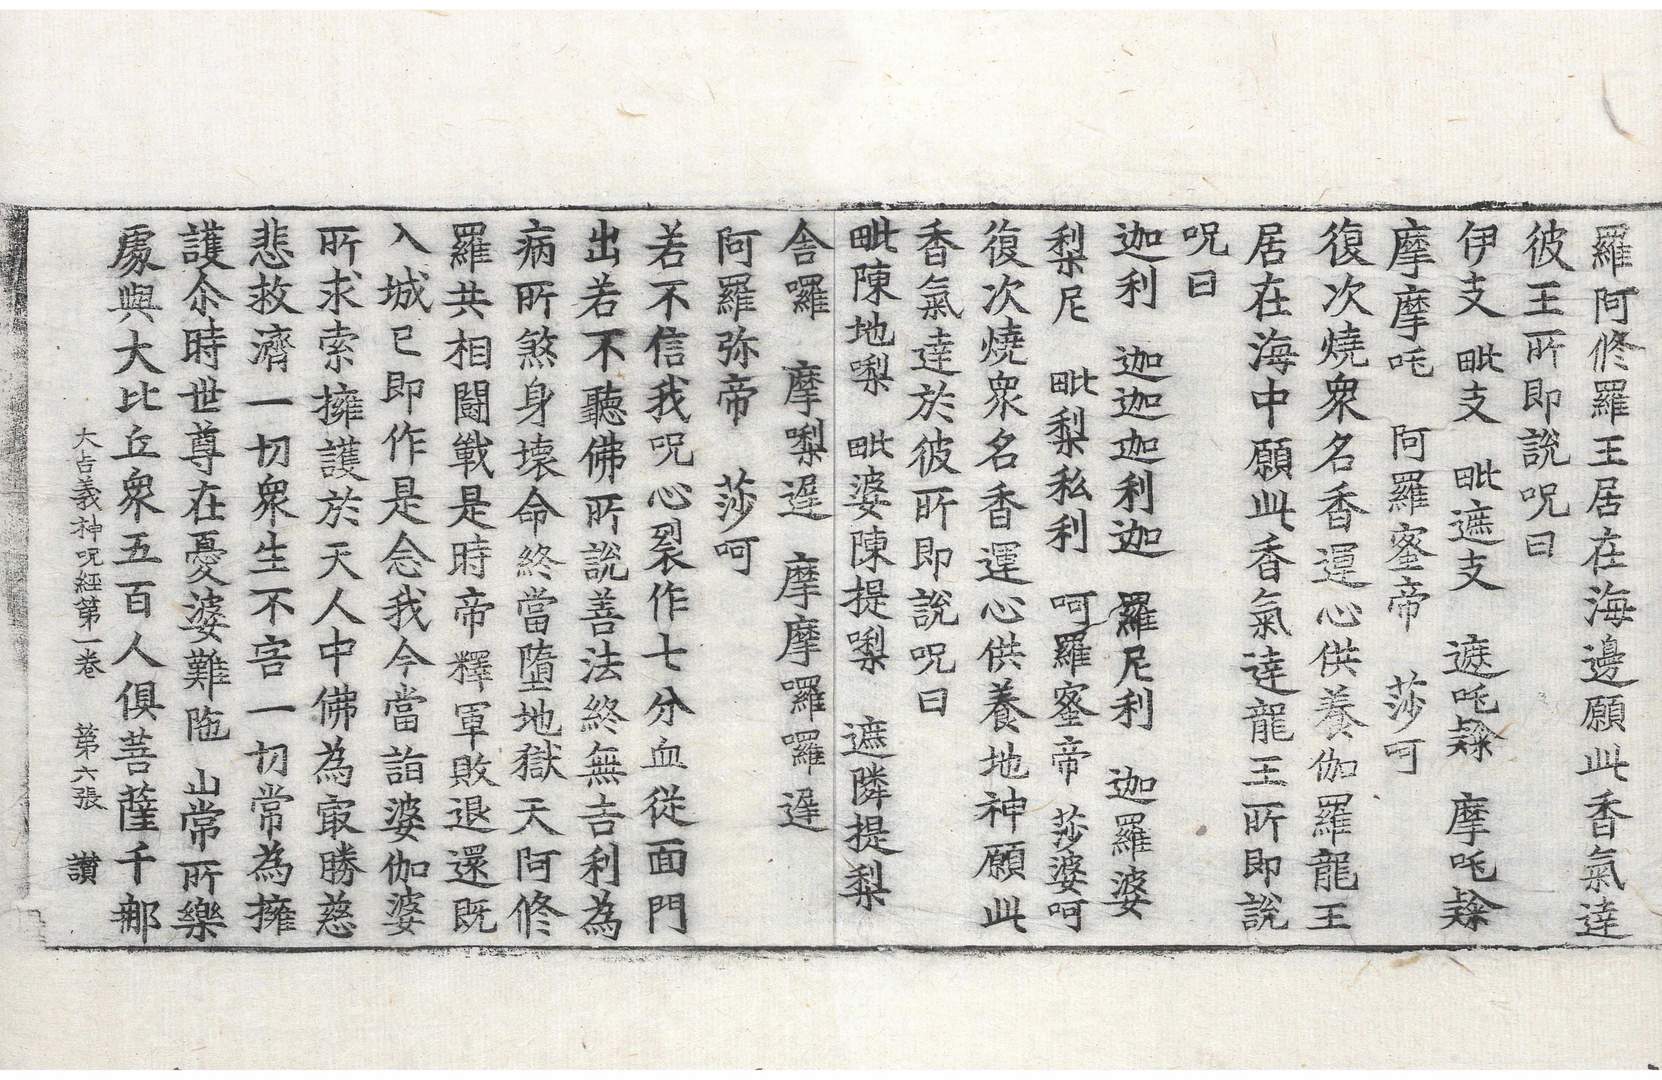 羅阿脩羅王居在海邊願此香氣達
彼王所即說呪曰
伊支　毗支　毗遮支　遮吒㝹　摩吒㝹
摩摩吒　阿羅蜜帝　莎呵
復次燒衆名香運心供養伽羅龍王
居在海中願此香氣達龍王所即說
呪曰
迦利　迦迦迦利迦　羅尼利　迦羅婆
梨尼　毗梨私利　呵羅蜜帝　莎婆呵
復次燒衆名香運心供養地神願此
香氣達於彼所即說呪曰
毗陳地㗚　毗婆陳提㗚　遮隣提梨
舍囉　摩㗚遲　摩摩囉囉遲
阿羅弥帝　莎呵
若不信我呪心裂作七分血從面門
出若不聽佛所說善法終無吉利為
病所煞身壞命終當墮地獄天阿脩
羅共相鬪戰是時帝釋軍敗退還既
入城已即作是念我今當詣婆伽婆
所求索擁護於天人中佛為㝡勝慈
悲救濟一切衆生不害一切常為擁
護尒時世尊在憂婆難陁山常所樂
處與大比丘衆五百人俱菩薩千那
大吉義神呪經第一卷　第六張　讃